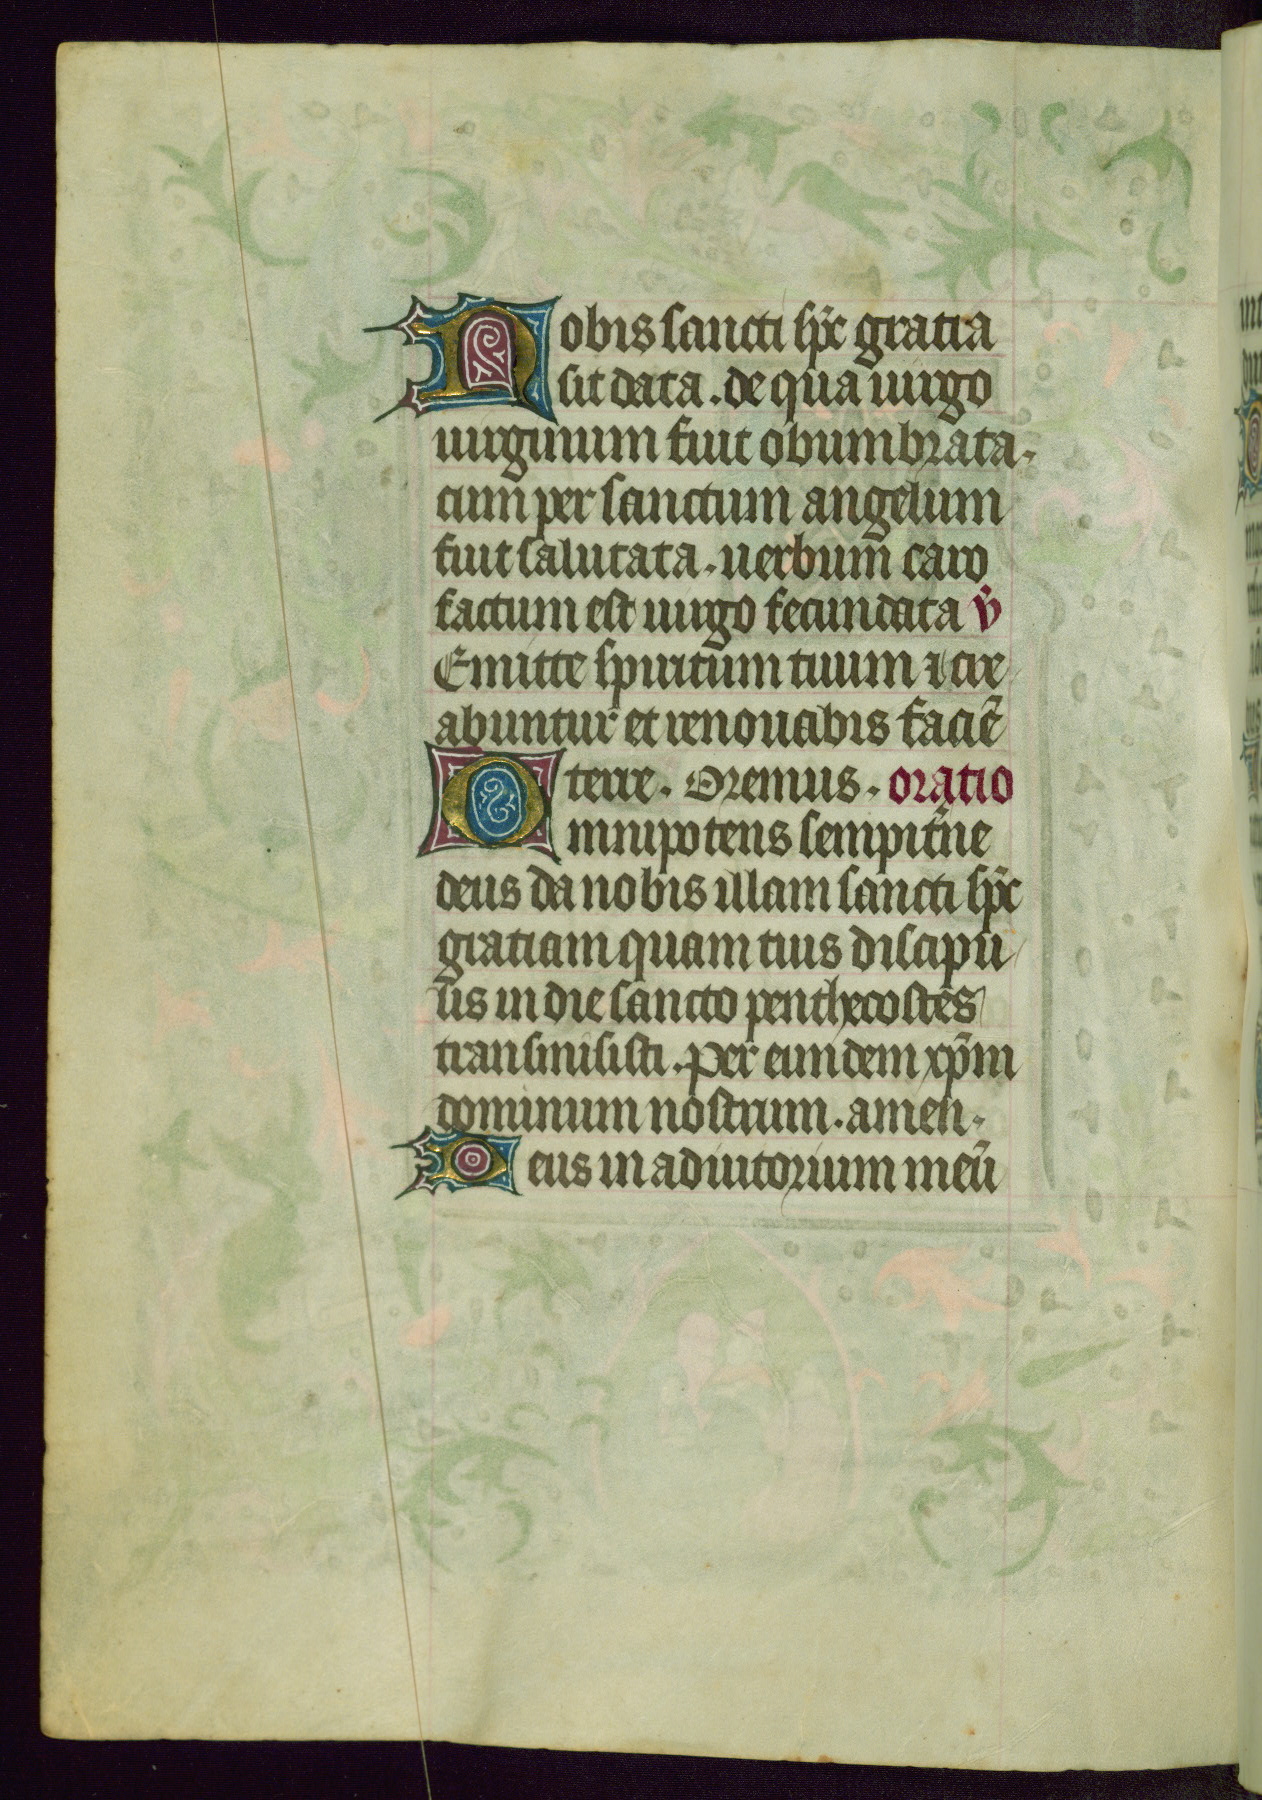 Nobis sancti sp̄c gratia
sit data. de qua uirgo
uirginum fuit obumbrata.
cum per sanctum angelum
fuit salutata. uerbum̄ caro
factum est uirgo fecundata v̄
Emitte spiritum tuum ⁊ cre
abuntur et renouabis faciē
terre. Oremus. oratio
Omnipotens sempit̄ne
deus da nobis illam sancti sp̄c
gratiam quam tuis discipu
lis in die sancto penthecostes
transmisisti. per eundem xp̄m
dominum nostrum. amen.
Deus in adiutorium meū